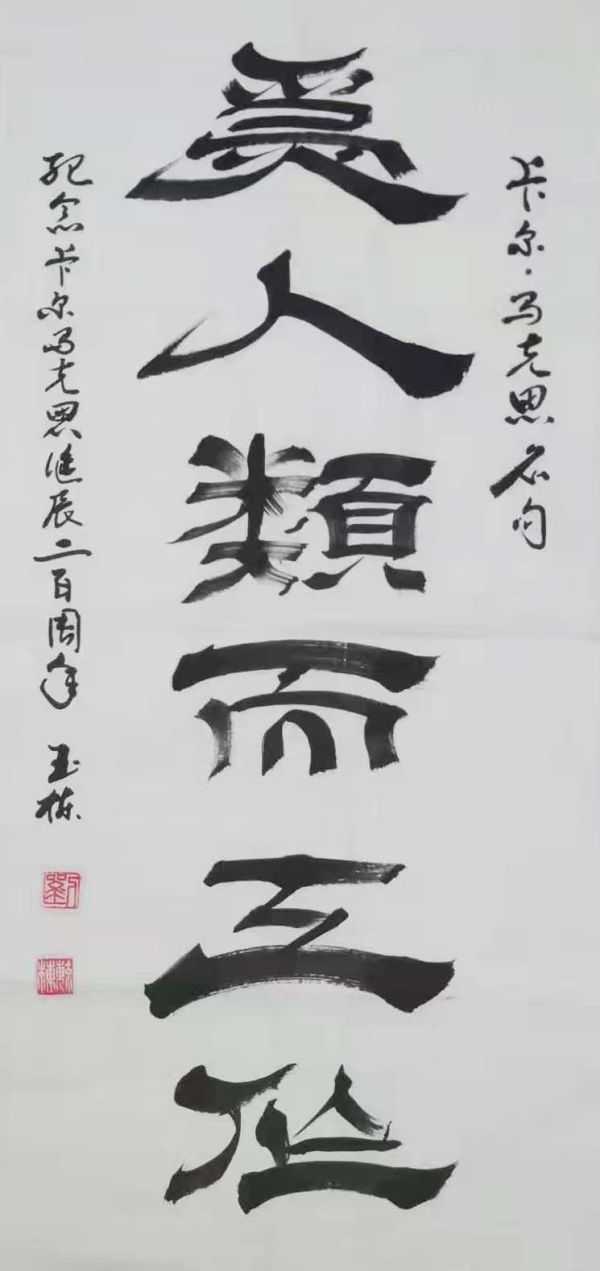 卡尔·马克思名句
為人類而工作
纪念卡尔马克思诞辰二百周年 玉栋